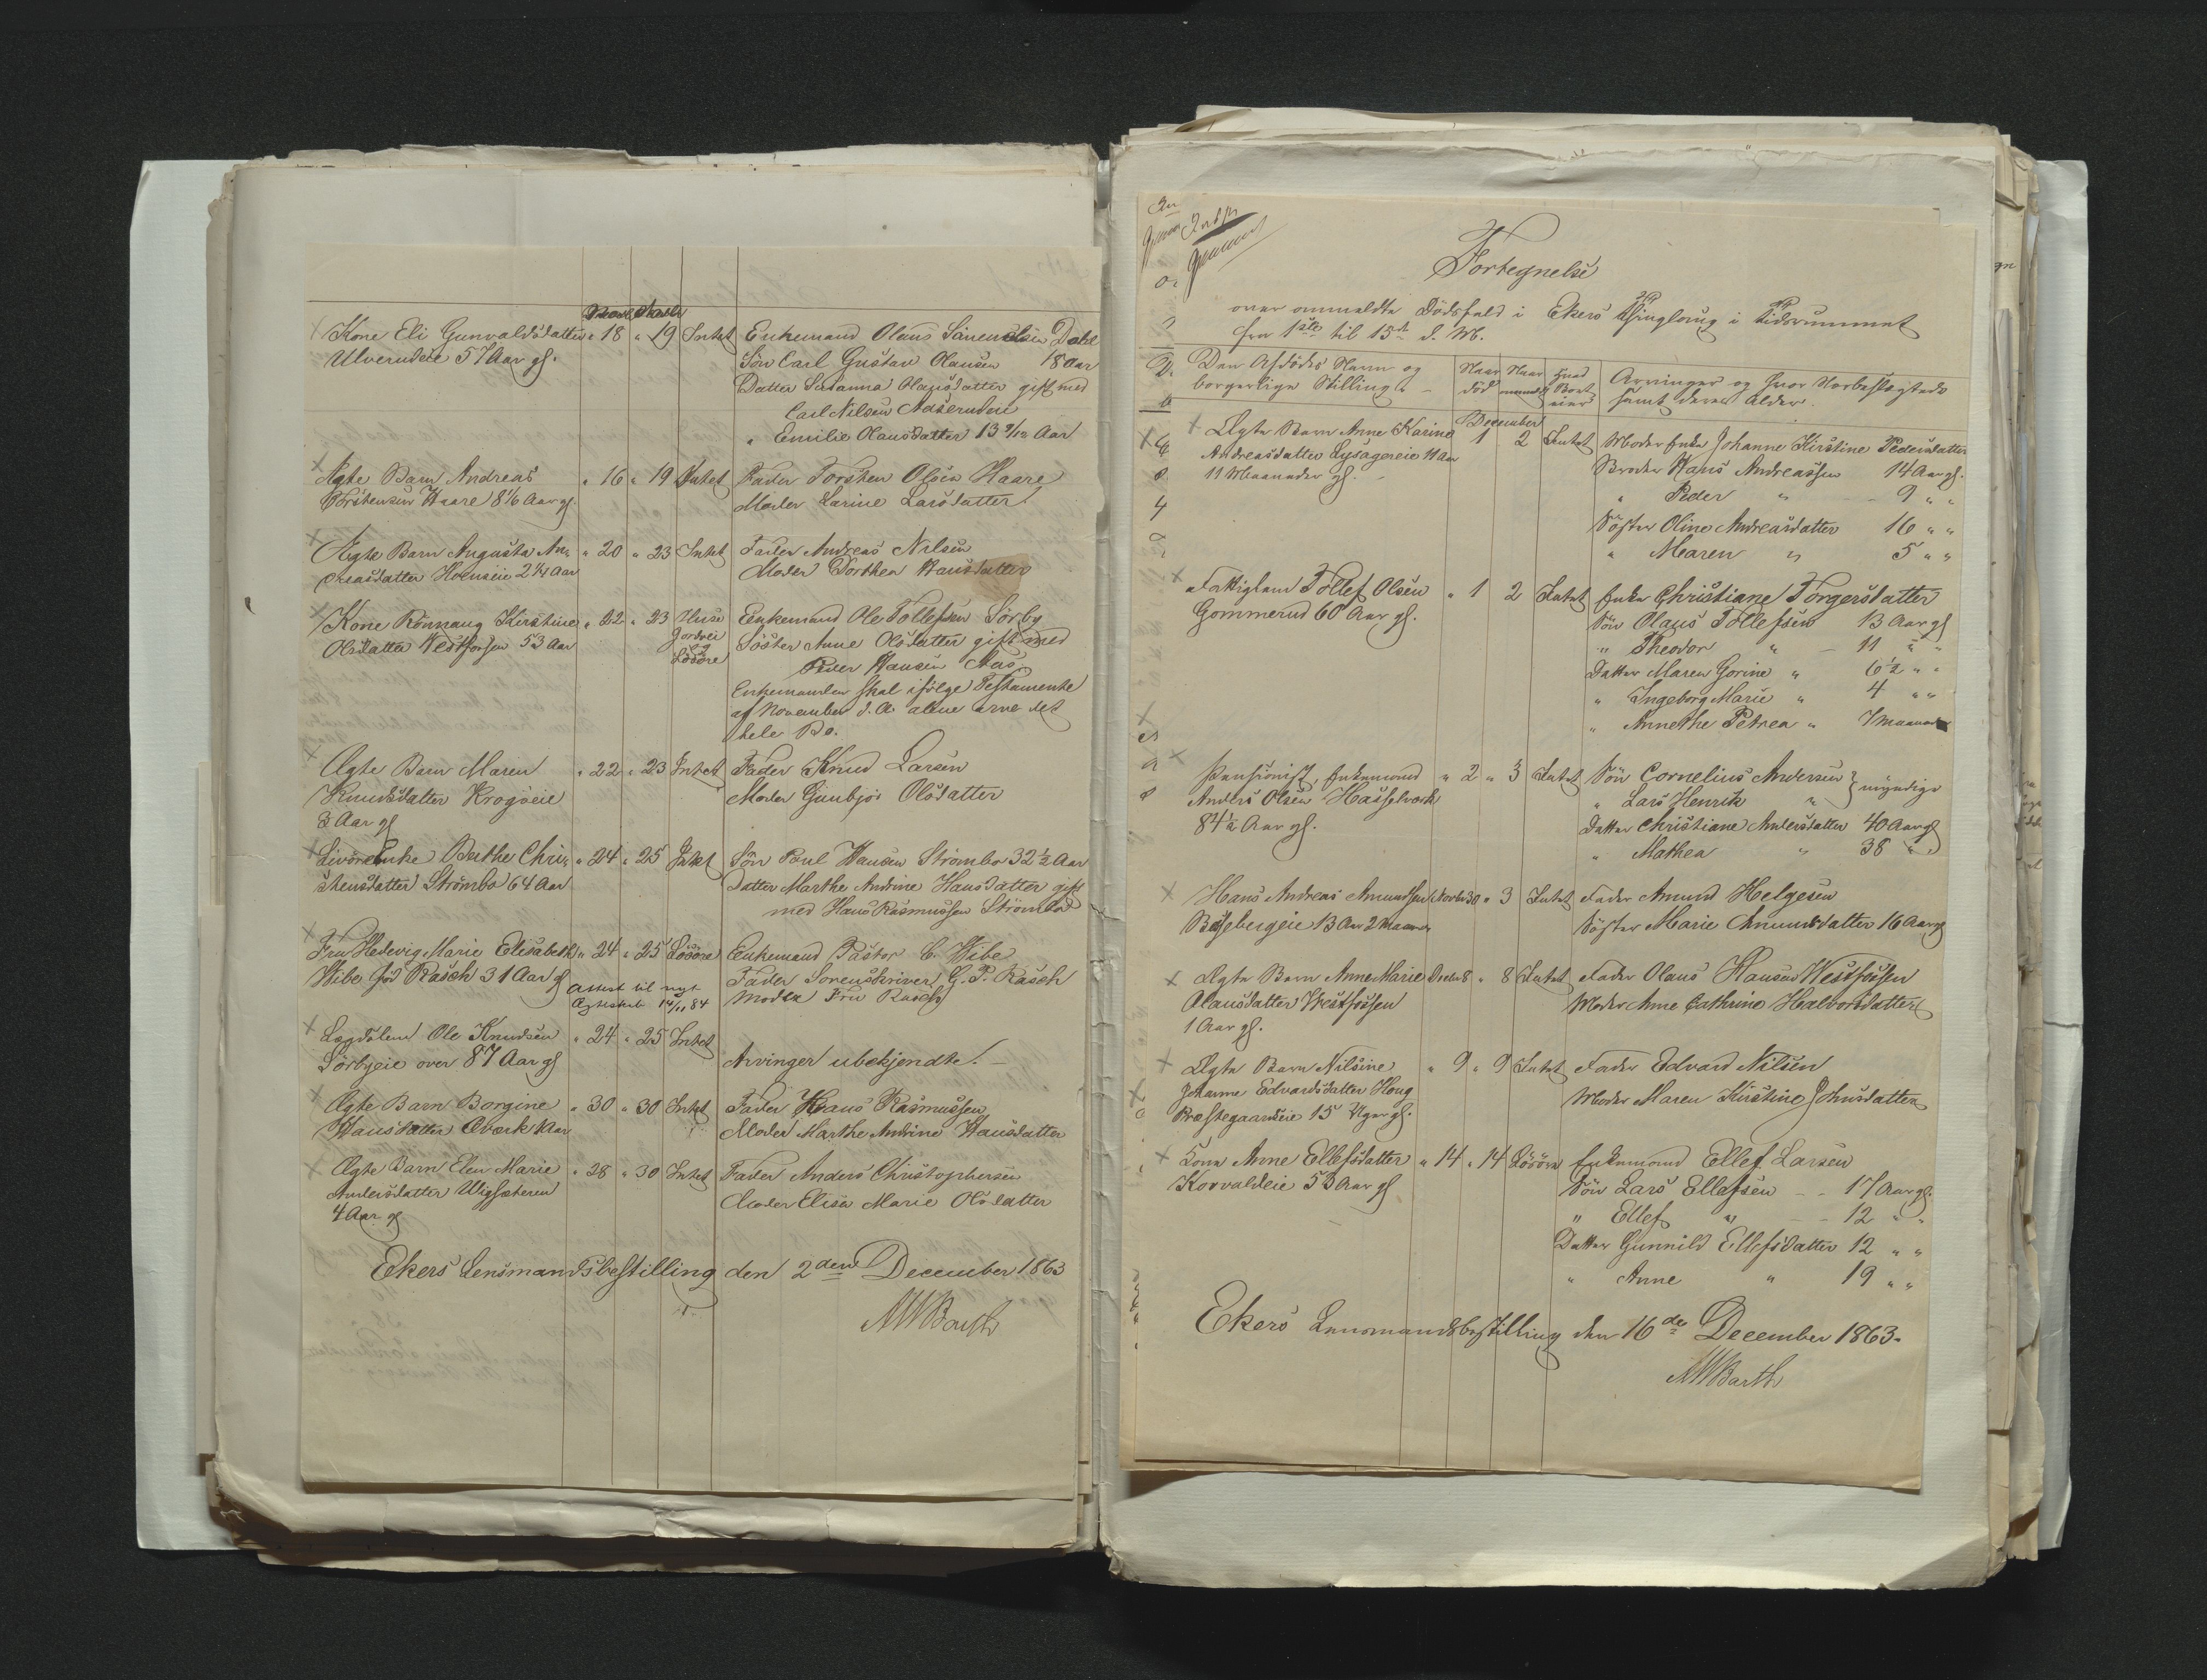 Kone Eli Gunvaldsdatter " 18 " 19 Intet Enkemand Olaus Dahl
Ulverudeie 57 Aar gl. Sön Carl Gustav Olausen 18 Aar
Datter Susanna Olausdatter gift med
Carl Nilsen
" Emilie Olausdatter 13 9/12 Aar
Ægte Barn Andreas " 16 " 19 Intet Fader Torsten Olsen Haare
Torstensen Haare 8 1/6 Aar gl. Moder Karine Larsdatter
Ægte Barn Augusta An- " 20 " 23 Intet Fader Andreas Nilsen
dreasdatter Hoenseie 2 1/4 Aar Moder Dorthea Hansdatter
Kone Rönnaug Kirstine " 22 " 23 Huse Enkemand Ole Tollefsen Sörby
Olsdatter Vestfossen 53 Aar Jordvei Söster Anne Olsdatter gift med
og Löööre Peder Hansen Aas
Enkemanden skal ifölge Testamente
af November d. A. alene arve det
hele Bo.
Ægte Barn Maren " 22 " 23 Intet Fader Knud Larsen
Knudsdatter Krogseie Moder Gunbjör Olsdatter
3 Aar gl
Livöreenke Berthe Chri- " 24 " 25 Intet Sön Poul Hansen Strömbo 32 1/2 Aar
stensdatter Strömbo 64 Aar Datter Marthe Andrine Hansdatter gift
med Hans Rasmussen Strömbo
Fru Hedevig Marie Elisabeth " 24 " 25 Lösöre Enkemand Pastor C. Wibe
Wibe föd Rasch 31 Aar gl Fader Sorenskriver G. P. Rasch
Attest til nyt Moder Fru Rasch
Ægteskab 14/11 84
Lægdslem Ole Knudsen " 24 " 25 Intet
Sörbyeie over 87 Aar gl Arvinger ubekjendte! —
Ægte Barn Borgine " 30 " 30 Intet Fader Hans Rasmussen
Hansdatter Aar Moder Marthe Andrine Hansdatter
Ægte Barn Elen Marie " 28 " 30 Intet Fader Anders Christophersen
Andersdatter Moder Elisa Marie Olsdatter
4 Aar gl
Ekers Lensmandsbestilling den 2den December 1863
MWBarth
Fortegnelse
over anmeldte Dödsfald i Ekers Thinglaug i Tidsrummet
fra 1ste til 15de d. M.
Den Afdödes Navn og Naar Naar Hvad Arvinger og hvor Nærbeslægtede
borgerlige Stilling. död anmeldt Boet eier samt deres Alder.
December
Ægte Barn Anne Karine 1 2 Intet Moder Enke Johanne Kirstine Pedersdatter
Andreasdatter Lysagereie 11 Aar Broder Hans Andreassen 14 Aar gl.
11 Maaneder gl. " Peder " 9 " "
Söster Oline Andreasdatter 16 " "
" Maren " 5 " "
Fattiglem Tollef Olsen " 1 2 Intet Enke Christiane Torgersdatter
Gommerud 60 Aar gl. Sön Olaus Tollefsen 13 Aar gl
" Theodor " 11 " "
Datter Maren Gorine " 6 1/2 " "
" Ingeborg Marie " 4 " "
" Annethe Petrea " 7 Maaned
Pensionist, Enkemand " 2 " 3 Intet Sön Cornelius Andersen } myndige
Anders Olsen Hasselværk " Lars Henrik "
84 1/2 Aar gl. Datter Christiane Andersdatter 40 Aar gl
" Mathea " 38 " "
Hans Andreas Amundsen Novbr 30 " 3 Intet Fader Amund Helgesen
Bögebergeie 13 Aar 2 Maaned Söster Marie Amundsdatter 16 Aar gl
Ægte Barn Anne Marie Decbr 8 " 8 Intet Fader Olaus Hansen Vestfossen
Olausdatter Vestfossen Moder Anne Cathrine Halvorsdatter
1 Aar gl.
Ægte Barn Nilsine " 9 " 9 Intet Fader Edvard Nilsen
Johanne Edvardsdatter Houg Moder Maren Kirstine Johnsdatter
Præstegaardseie 15 Uger gl.
Kone Anne Ellefsdatter " 14 " 14 Lösöre Enkemand Ellef Larsen
Korvaldeie 53 Aar gl Sön Lars Ellefsen - - 17 Aar gl.
" Ellef " - - 12 " "
Datter Gunnild Ellefsdatter 12 " "
" Anne " 19 " "
Ekers Lensmandsbestilling den 16de December 1863.
MWBarth